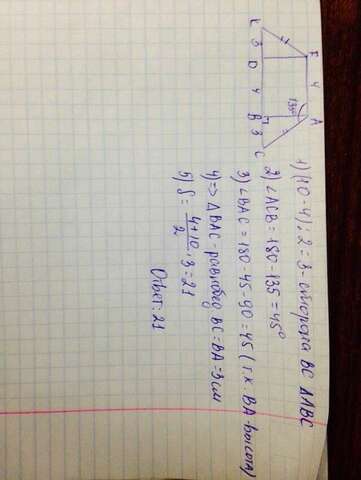 K 3 D 4 B 3 C
E 4 A
135°
1) (10-4):2=3 - сторона BC ΔABC
2) ∠ACB = 180-135 = 45°
3) ∠BAC = 180-45-90 = 45 (т.к. BA-высота)
4) => ΔBAC - равнобед BC=BA=3см
5) S = 4+10/2 · 3 = 21
Ответ: 21